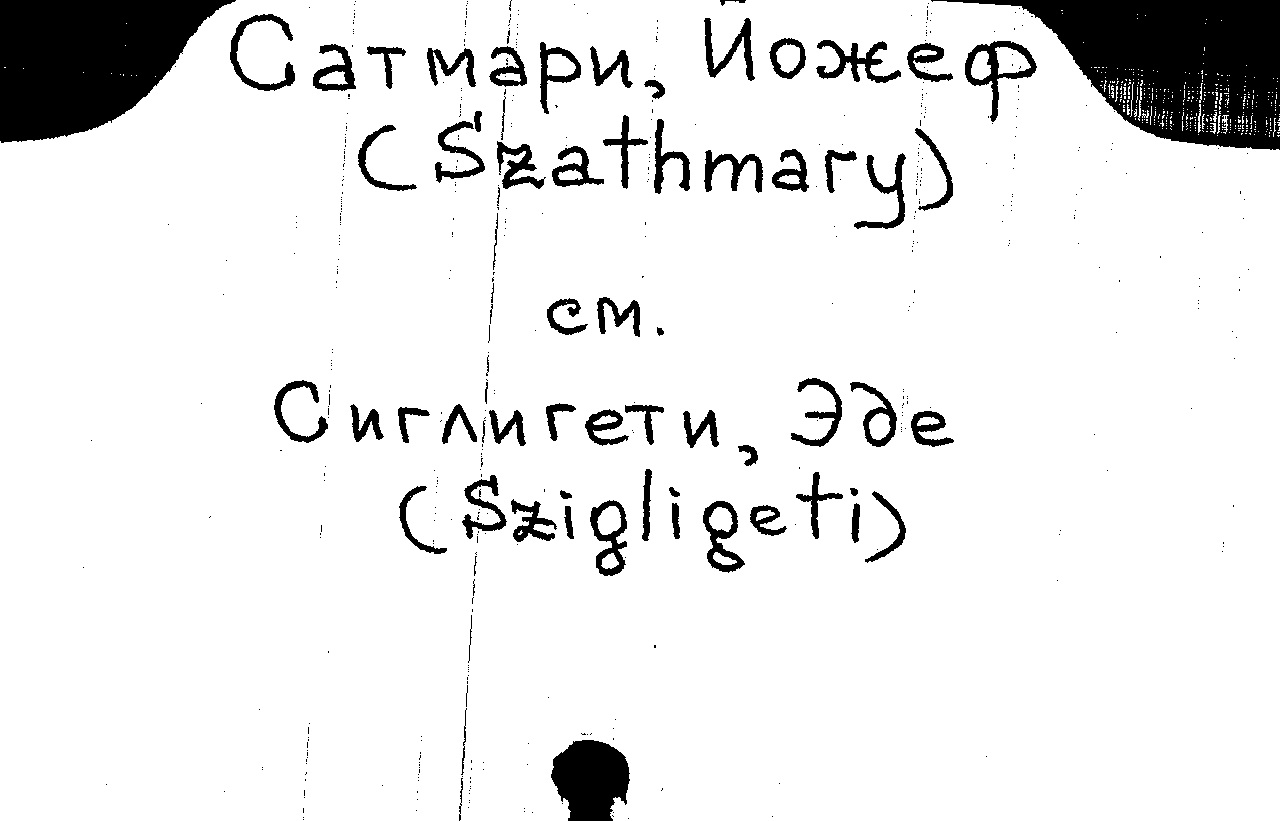 Сатмари, Йожеф
(Szathmary)
см.
Сиглигети, Эде
(Szigligeti)